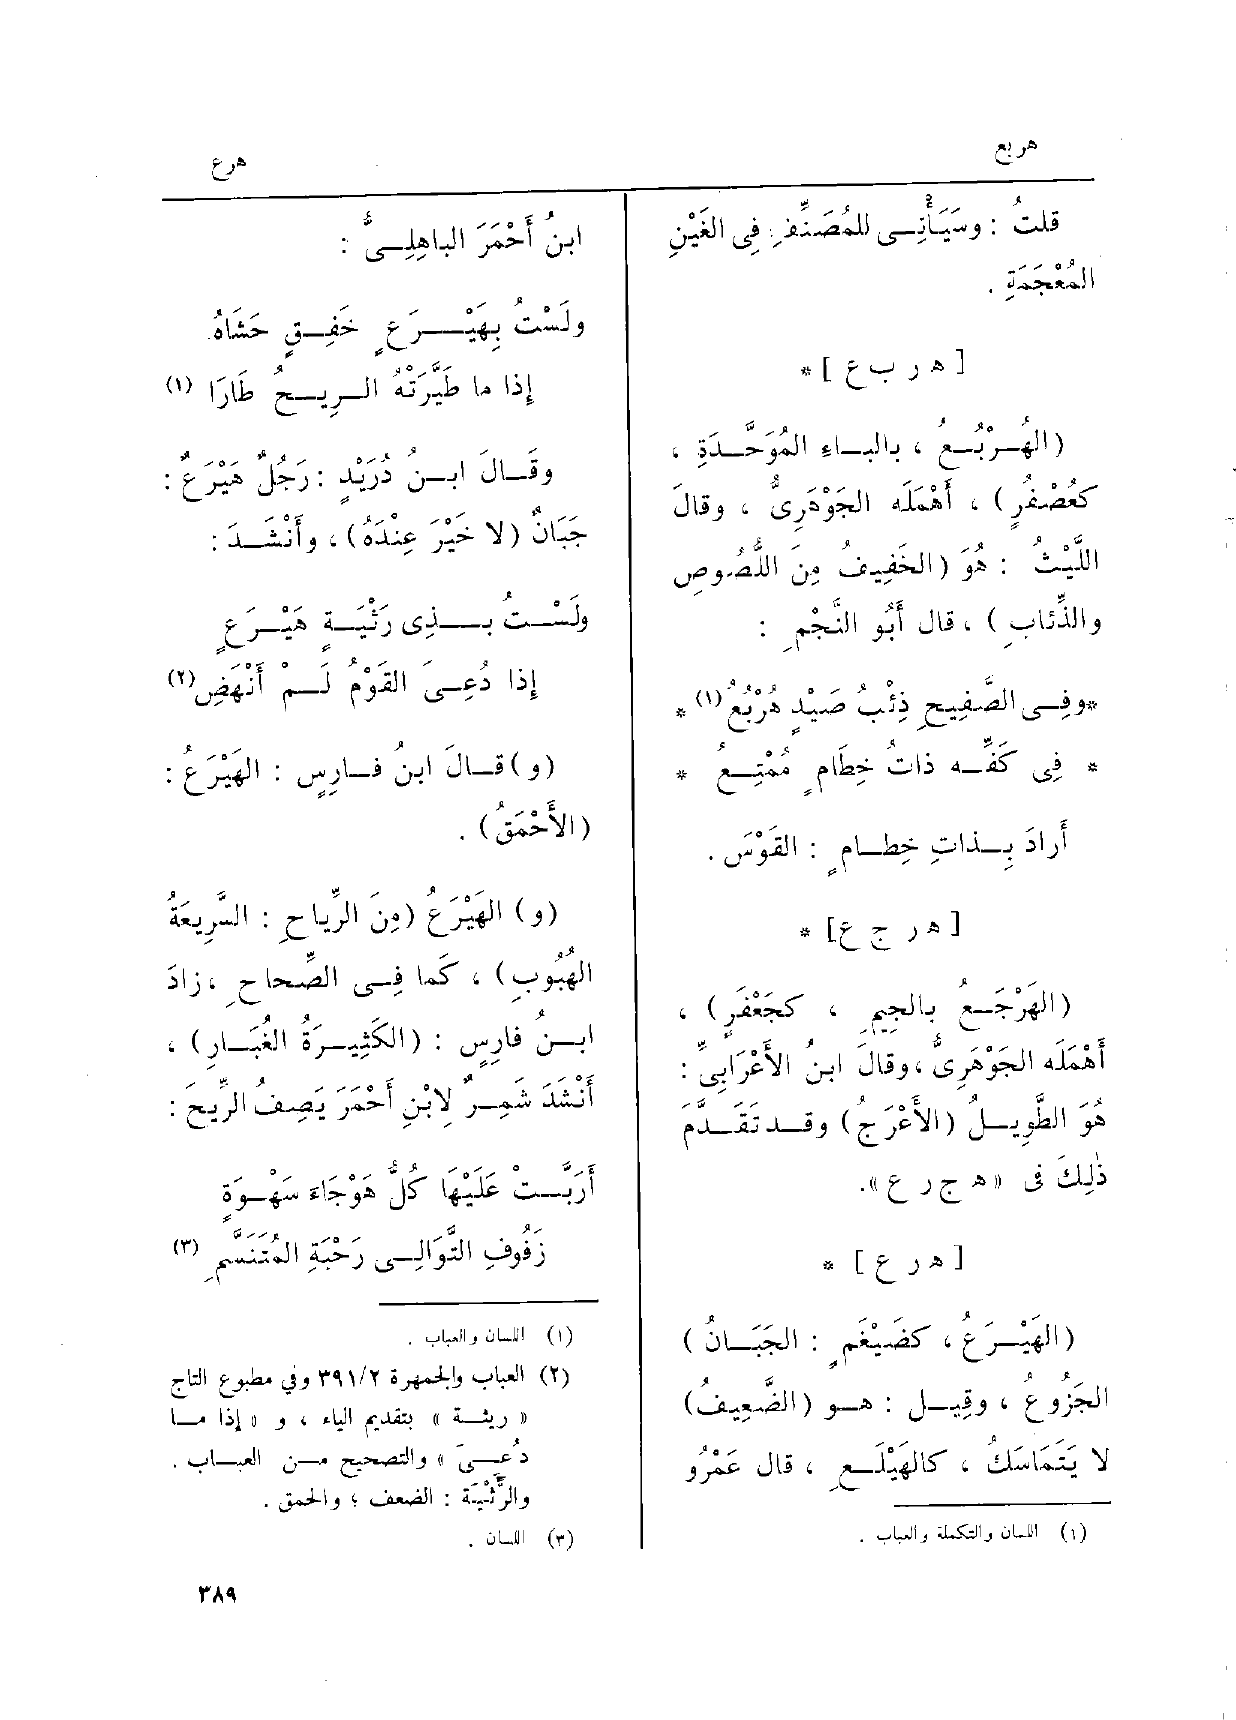 هربع
هرع
قلتُ : وسَيَأْتِى للمُصَنِّفِ فِى الغَيْنِ
المُعْجَمَةِ .
[ ه ر ب ع ] *
(الهُرْبُعُ ، بالباءِ المُوَحَّدَةِ ،
كعُصْفُرٍ) ، أَهْمَلَه الجَوْهَرِىُّ ، وقالَ
اللَّيْثُ : هُوَ (الخَفِيفُ مِنَ اللُّصُوصِ
والذِّئابِ ) ، قال أَبُو النَّجْمِ :
*وفِى الصَّفِيحِ ذِئْبُ صَيْدٍ هُرْبُعُ(١) *
* فِى كَفِّه ذاتُ خِطَامٍ مُمْتِعُ *
أَرادَ بِذاتِ خِطامٍ : القَوْسَ .
[ه ر ج ع] *
(الهَرْجَعُ بالجِيمِ ، كجَعْفَرٍ) ،
أَهْمَلَه الجَوْهَرِىُّ ، وقالَ ابنُ الأَعْرَابِىِّ :
هُوَ الطَّوِيلُ (الأَعْرَجُ) وقد تَقَدَّمَ
ذٰلِكَ فى «ه ج ر ع».
[ ه ر ع ] *
(الهَيْرَعُ ، كضَيْغَمٍ : الجَبَانُ )
الجَزُوعُ ، وقِيلَ : هو (الضَّعِيفُ)
لا يَتَمَاسَكُ ، كالهَيْلَعِ ، قال عَمْرُو
(١) اللسان والتكملة والعباب .
ابنُ أَحْمَرَ الباهِلِىُّ :
ولَسْتُ بِهَيْرَعٍ خَفِقٍ حَشَاهُ
إِذا ما طَيَّرَتْهُ الرِيحُ طَارَا (١)
وقَالَ ابنُ دُرَيْدٍ : رَجُلٌ هَيْرَعٌ :
جَبَانٌ (لا خَيْرَ عِنْدَهُ) ، وأَنْشَدَ :
ولَسْتُ بِذِى رَثْيَةٍ هَيْرَعٍ
إِذا دُعِىَ القَوْمُ لَمْ أَنْهَضِ(٢)
(و) قالَ ابنُ فارِسٍ : الهَيْرَعُ :
(الأَحْمَقُ) .
(و) الهَيْرَعُ (مِنَ الرِّياحِ : السَّرِيعَةُ
الهُبُوبِ) ، كما فِى الصِّحاحِ ، زادَ
ابن فارِسٍ : (الكَثِيرَةُ الغُبَارِ) ،
أَنْشَدَ شَمِرٌ لِابْنِ أَحْمَرَ يَصِفُ الرِّيحَ :
أَرَبَّتْ عَلَيْهَا كُلُّ هَوْجَاءَ سَهْوَةٍ
زَفُوفِ التَّوَالِى رَحْبَةِ المُتَنَسَّمِ (٣)
(١) اللسان والعباب .
(٢) العباب والجمهرة ٣٩١/٢ وفي مطبوع التاج
« ريثة » بتقديم الياء ، و « إذا ما
دُعِىَ » والتصحيح من العباب .
والرَّثْيَة : الضعف ؛ والحمق .
(٣) اللسان .
٣٨٩